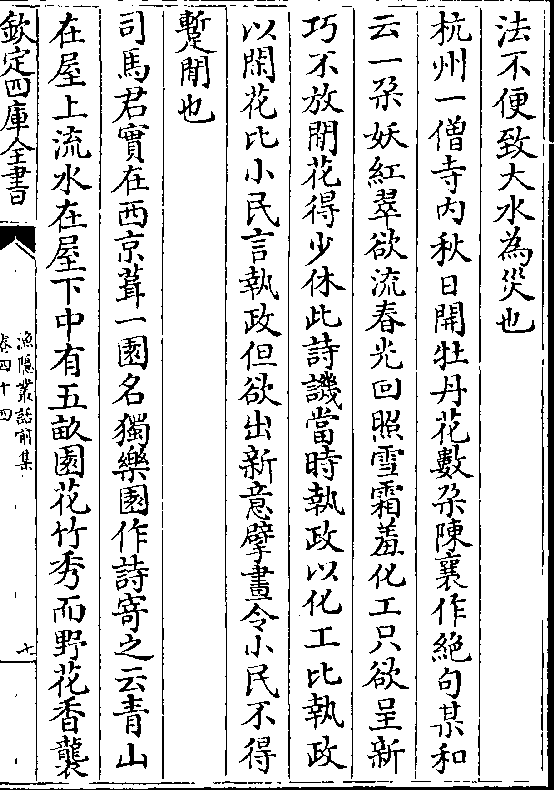 法不便致大水為災也
杭州一僧寺内秋日開牡丹花數朶陳襄作絶句某和
云一朶妖紅翠欲流春光回照雪霜羞化工只欲呈新
巧不放閒花得少休此詩譏當時執政以化工比執政
以閑花比小民言執政但欲出新意擘畫令小民不得
蹔閒也
司馬君實在西京葺一園名獨樂園作詩寄之云青山
在屋上流水在屋下中有五畝園花竹秀而野花香襲
欽定四庫全書
漁隱叢話前集
卷四十四
七